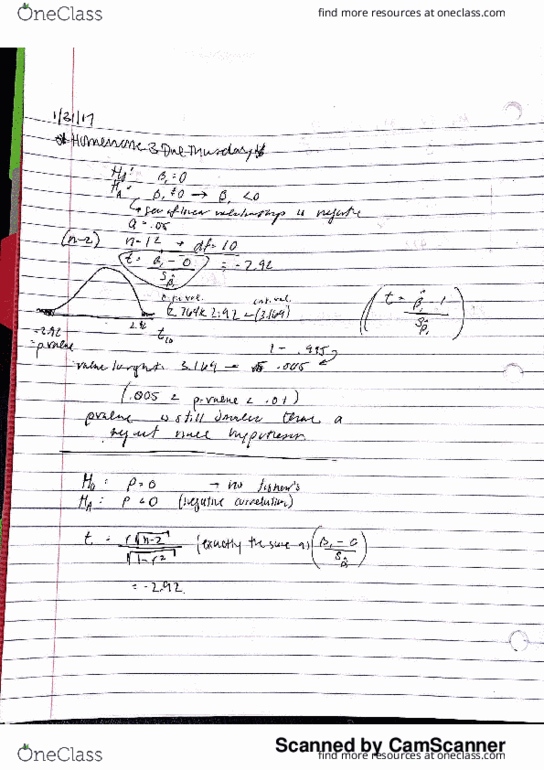 OneClass
find more resources at oneclass.com
1/31/17
Homework 3 Due Thursday
H₀: β₁ = 0
Hₐ: β₁ ≠ 0 → β₁ < 0
↳ linear relationship is negative
α = .05
(n-2) n = 12 → df = 10
t = β̂₁ - 0 / Sβ̂₁ = -2.92
crit. val. crit. val.
2.764 < 2.92 < (3.169)
(t = β̂₁ - 1 / Sβ̂₁)
-2.92 2.92 t₁₀
= pvalue
1 - .995
value 3.169 → .005
(.005 < p-value < .01)
pvalue is still smaller than α
reject null hypothesis
H₀: ρ = 0 → no
Hₐ: ρ < 0 (negative correlation)
t = r√n-2 / √1-r² (exactly the same as) (β̂₁ - 0 / Sβ̂₁)
= -2.92
Scanned by CamScanner
OneClass
find more resources at oneclass.com